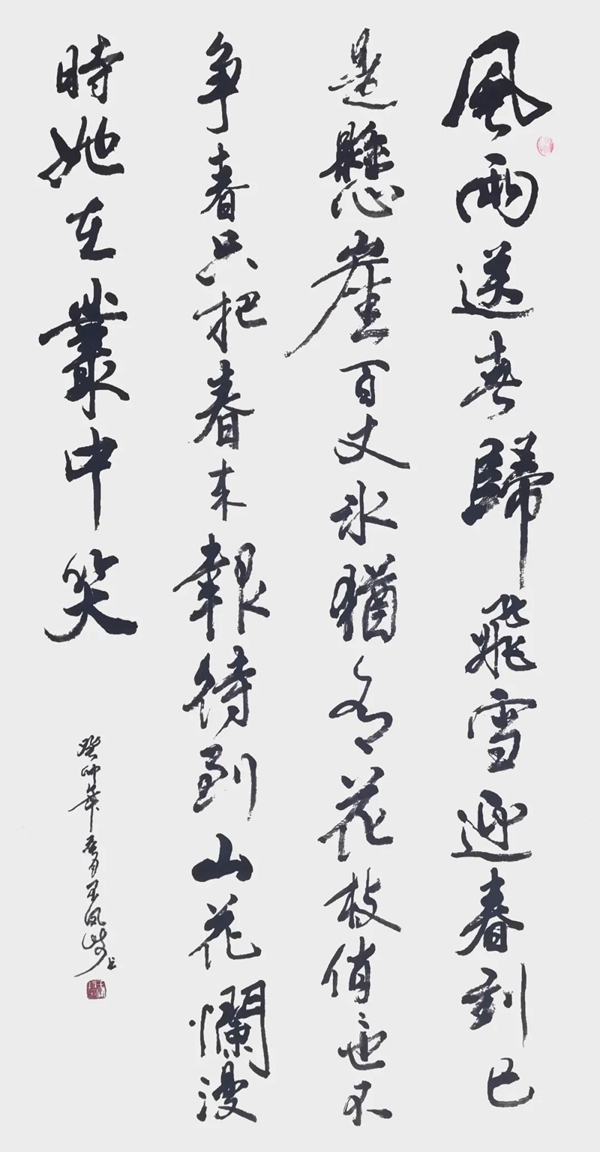 風雨送春歸飛雪迎春到已
是懸崖百丈冰猶有花枝俏也不
争春只把春来報待到山花爛漫
時她在叢中笑
癸卯年